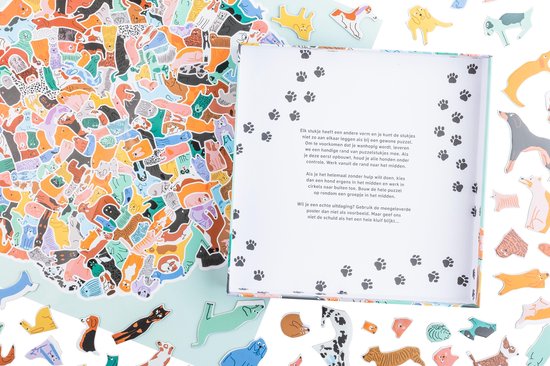 Elk stukje heeft een andere vorm en je kunt de stukjes
niet zo aan elkaar leggen als bij een gewone puzzel.
Om te voorkomen dat je wanhopig wordt, leveren
we een handige rand van puzzelstukjes mee. Als
je deze eerst opbouwt, houd je alle honden onder
controle. Werk vanuit de rand naar het midden.
Als je het helemaal zonder hulp wilt doen, kies
dan een hond ergens in het midden en werk in
cirkels naar buiten toe. Bouw de hele puzzel
op rondom een groepje in het midden.
Wil je een echte uitdaging? Gebruik de meegeleverde
poster dan niet als voorbeeld. Maar geef ons
niet de schuld als het een hele kluif blijkt...